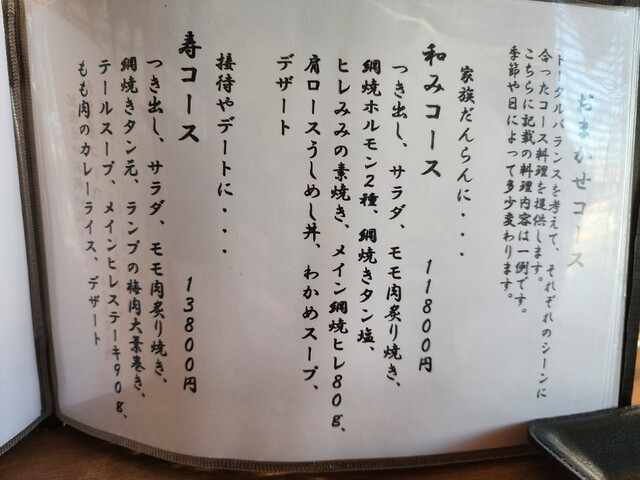 おまかせコース
トータルバランスを考えて、それぞれのシーンに
合ったコース料理を提供します。
こちらに記載の料理内容は一例です。
季節や日によって多少変わります。
家族だんらんに・・・
和みコース 11800円
つき出し、サラダ、モモ肉炙り焼き、
網焼きホルモン2種、網焼きタン塩、
ヒレみみの素焼き、メイン網焼ヒレ80g、
肩ロースうしめし丼、わかめスープ、
デザート
接待やデートに・・・
寿コース 13800円
つき出し、サラダ、モモ肉炙り焼き、
網焼きタン元、ランプの梅肉大葉巻き、
テールスープ、メインヒレステーキ90g、
もも肉のカレーライス、デザート